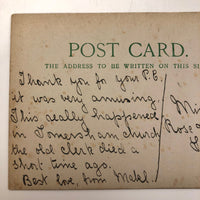 POST CARD.
THE ADDRESS TO BE WRITTEN ON THIS SI
Thank you for your P.C.
it was very amusing.
This really happened
in Somersham church
the old clerk died a
short time ago.
Best love, from Mabl.
Mi
Rose
S